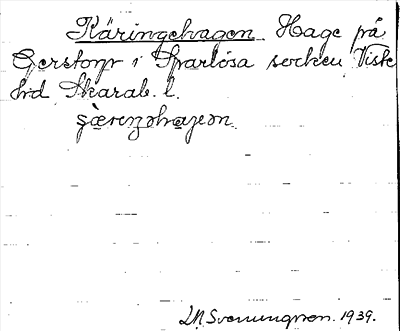 Käringehagen Hage på
Gerstorp i Sparlösa socken Viste
hd Skarab. l.
L.N. Svenungsson. 1939.